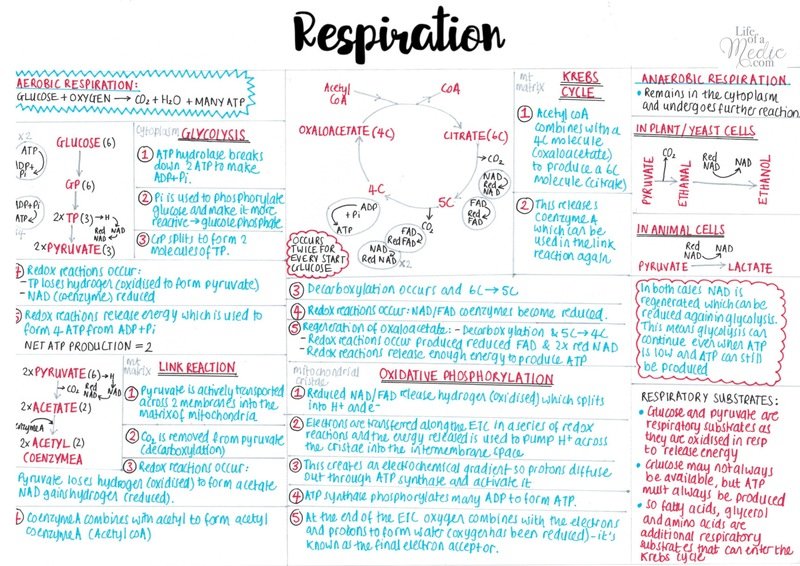 Respiration
Life
of a
Medic
.com
AEROBIC RESPIRATION:
GLUCOSE + OXYGEN → CO2 + H2O + MANY ATP
x2
ATP
ADP+
Pi
ADP+
Pi
ATP
GLUCOSE (6)
GP (6)
2x TP (3) → H
Red
NAD
NAD
2x PYRUVATE (3)
cytoplasm
GLYCOLYSIS
① ATP hydrolase breaks
down 2 ATP to make
ADP+Pi.
② Pi is used to phosphorylate
glucose and make it more
reactive → glucose phosphate
③ GP splits to form 2
molecules of TP.
Redox reactions occur:
- TP loses hydrogen (oxidised to form pyruvate)
- NAD (coenzyme) reduced
Redox reactions release energy which is used to
form 4 ATP from ADP+Pi
NET ATP PRODUCTION = 2
2x PYRUVATE (6) → H
→ CO2 Red
NAD
NAD
2x ACETATE (2)
2x ACETYL (2)
COENZYME A
mt
matrix
LINK REACTION
① Pyruvate is actively transported
across 2 membranes into the
matrix of mitochondria
② CO2 is removed from pyruvate
(decarboxylation)
③ Redox reactions occur:
Pyruvate loses hydrogen (oxidised) to form acetate
NAD gains hydrogen (reduced).
Coenzyme A combines with acetyl to form acetyl
coenzyme A (Acetyl CoA)
Acetyl
CoA
CoA
OXALOACETATE (4C)
CITRATE (6C)
→ CO2
NAD
Red
NAD
5C
FAD
Red
FAD
CO2
4C
ADP
+ Pi
ATP
FAD
Red FAD
NAD
Red NAD
x2
OCCURS
TWICE FOR
EVERY START
GLUCOSE
mt
matrix
KREBS
CYCLE
① Acetyl CoA
combines with a
4C molecule
(oxaloacetate)
to produce a 6C
molecule (citrate)
② This releases
coenzyme A
which can be
used in the link
reaction again
③ Decarboxylation occurs and 6C → 5C
④ Redox reactions occur: NAD/FAD coenzymes become reduced.
⑤ Regeneration of oxaloacetate: - Decarboxylation & 5C → 4C
- Redox reactions occur produced reduced FAD & 2x red NAD
- Redox reactions release enough energy to produce ATP
mitochondrial
cristae
OXIDATIVE PHOSPHORYLATION
① Reduced NAD/FAD release hydrogen (oxidised) which splits
into H+ and e-
② Electrons are transferred along the ETC in a series of redox
reactions and the energy released is used to pump H+ across
the cristae into the intermembrane space
③ This creates an electrochemical gradient so protons diffuse
out through ATP synthase and activate it
④ ATP synthase phosphorylates many ADP to form ATP.
⑤ At the end of the ETC oxygen combines with the electrons
and protons to form water (oxygen has been reduced) - it's
known as the final electron acceptor.
ANAEROBIC RESPIRATION
• Remains in the cytoplasm
and undergoes further reaction
IN PLANT/YEAST CELLS
PYRUVATE
CO2
ETHANAL
Red
NAD
NAD
ETHANOL
IN ANIMAL CELLS
Red
NAD
NAD
PYRUVATE → LACTATE
In both cases NAD is
regenerated which can be
reduced again in glycolysis.
This means glycolysis can
continue even when ATP
is low and ATP can still
be produced
RESPIRATORY SUBSTRATES:
• Glucose and pyruvate are
respiratory substrates as
they are oxidised in resp
to release energy
• Glucose may not always
be available, but ATP
must always be produced
• So fatty acids, glycerol
and amino acids are
additional respiratory
substrates that can enter the
Krebs cycle